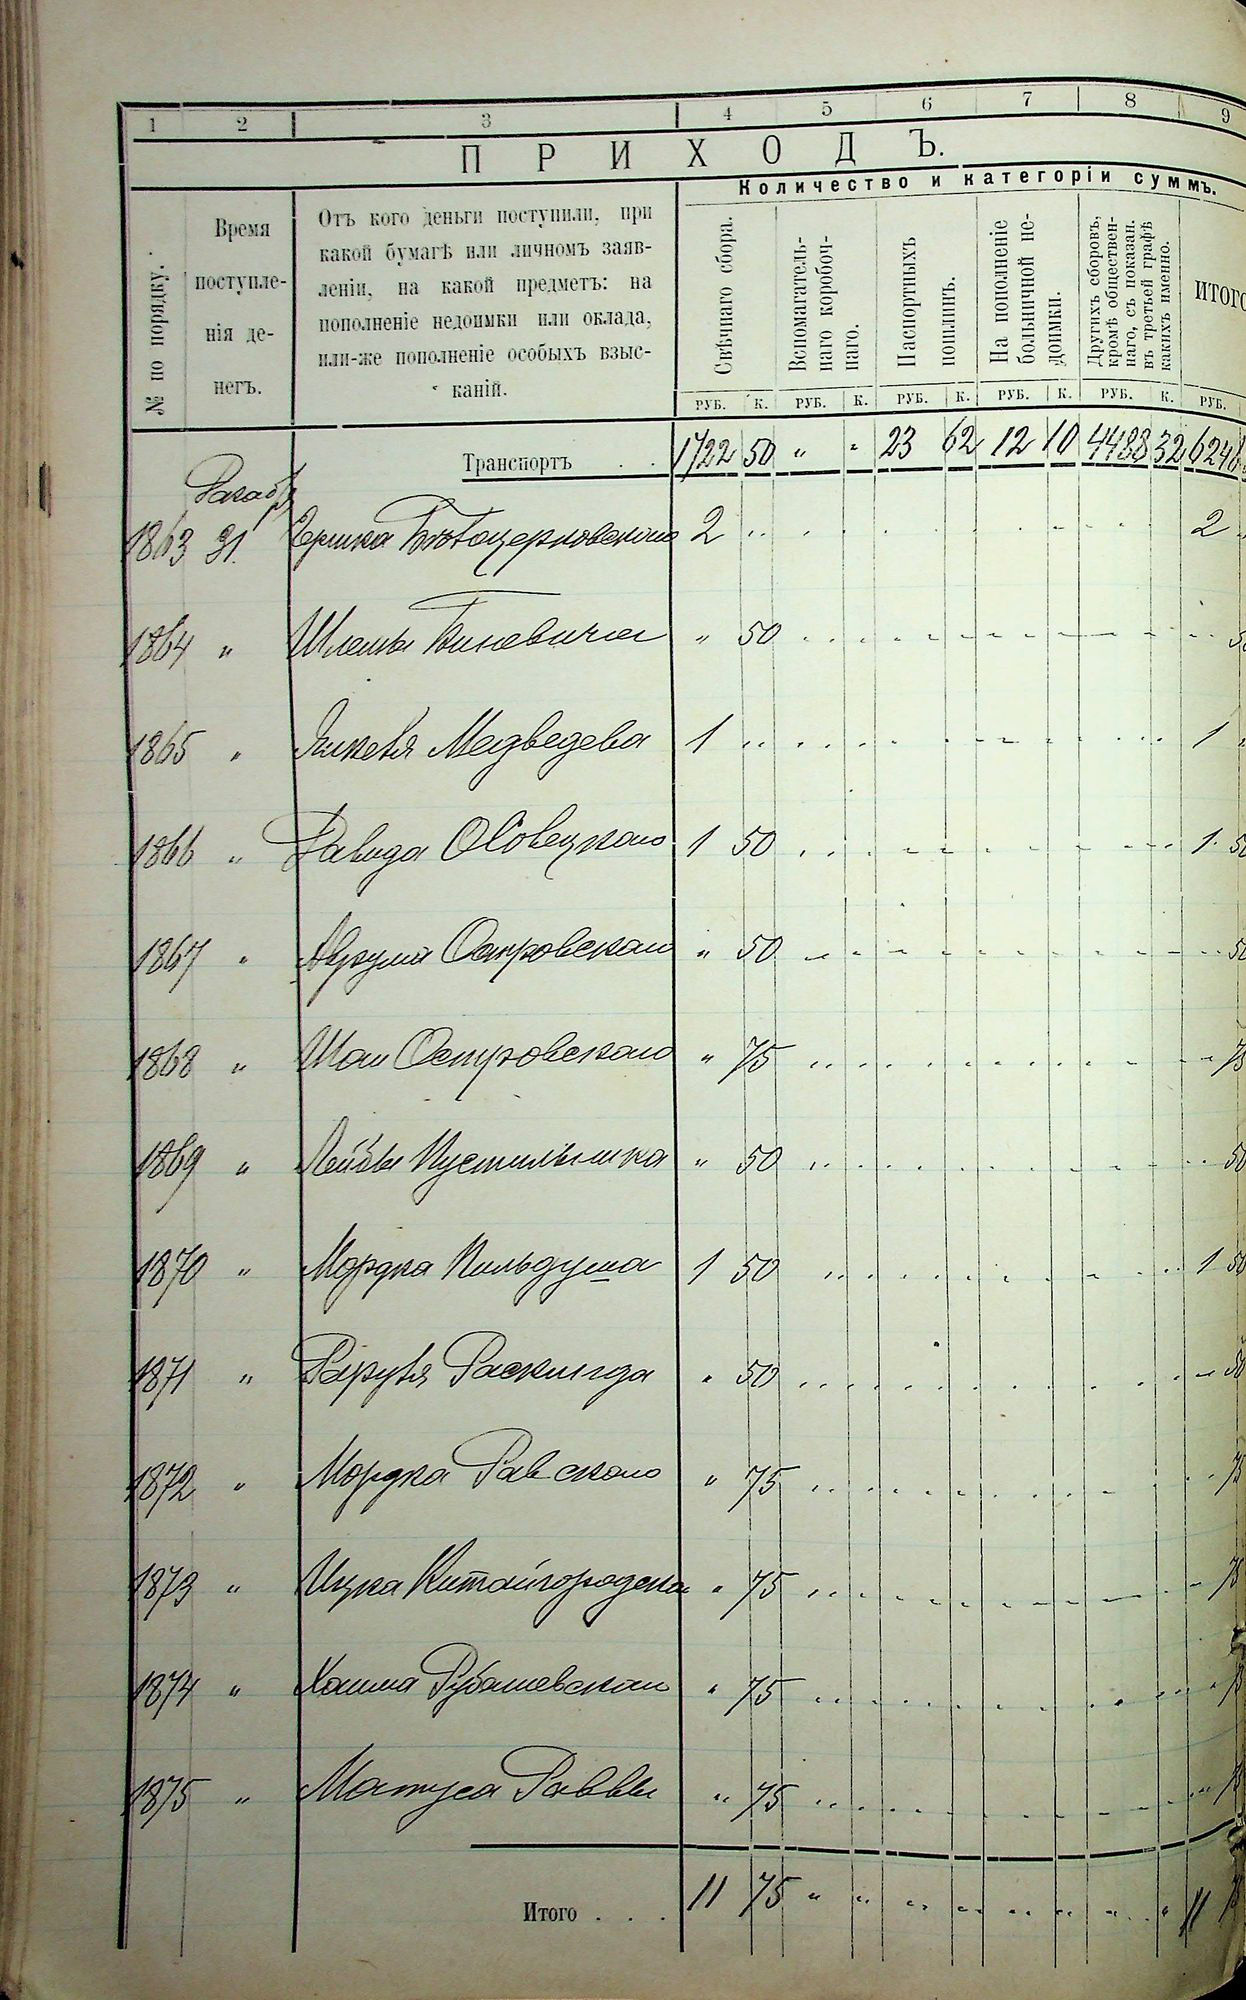 1 2 3 4 5 6 7 8 9
ПРИХОДЪ.
Количество и категоріи суммъ.
№ по порядку.
Время поступле-
нія де-
негъ.
Отъ кого деньги поступили, при
какой бумагѣ или личномъ заяв-
леніи, на какой предметъ: на
пополненіе недоимки или оклада,
или-же пополненіе особыхъ взыс-
каній.
Свѣчнаго сбора.
Вспомагатель-
наго коробоч-
наго.
Паспортныхъ
пошлинъ.
На пополненіе
больничной не-
доимки.
Другихъ сборовъ,
кромѣ обществен-
наго, съ показан.
въ третьей графѣ
какихъ именно.
ИТОГО
РУБ. К. РУБ. К. РУБ. К. РУБ. К. РУБ. К. РУБ.
Транспортъ . . 1722 50 " " 23 62 12 10 4488 32 6246
1863 31. 2 2
1864 " Шлемы Биневича " 50
1865 " Медведева 1 1
1866 " Давида Осовецкаго 1 50 1 50
1867 " Аврума Островскаго " 50 50
1868 " Шаи Островскаго " 75 75
1869 " Лейбы Пустильника " 50 50
1870 " Мордка Кильдуша 1 50 1 50
1871 " Раскинда " 50 50
1872 " Мордка Равскаго " 75 75
1873 " Ицка Китайгородска " 75 75
1874 " Хаима Рубашевскаго " 75 75
1875 " Матуса Раввы " 75 75
Итого . . . 11 75 " " 11 75